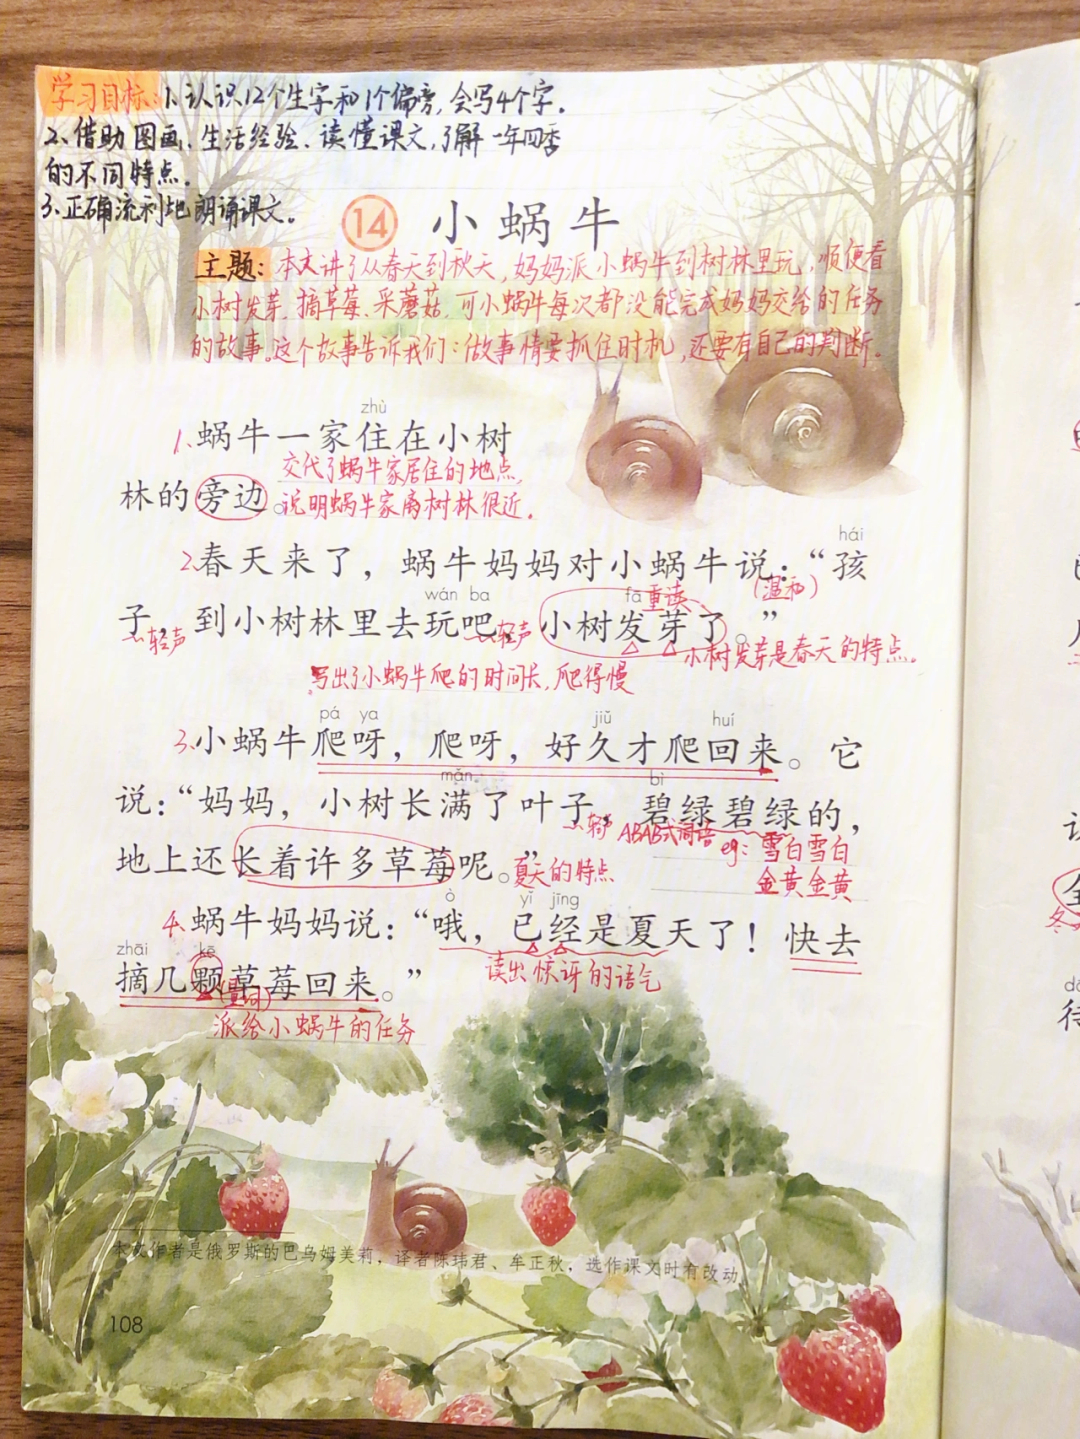 学习目标:1、认识12个生字和1个偏旁,会写4个字.
2、借助图画、生活经验、读懂课文,了解一年四季
的不同特点.
3、正确流利地朗诵课文.
14 小蜗牛
主题:本文讲了从春天到秋天,妈妈派小蜗牛到树林里玩,顺便看
小树发芽.摘草莓、采蘑菇.可小蜗牛每次都没能完成妈妈交给的任务
的故事.这个故事告诉我们:做事情要抓住时机,还要有自己的判断.
zhù
1、蜗牛一家住在小树
交代了蜗牛家居住的地点,
林的旁边。说明蜗牛家离树林很近.
hái
2.春天来了，蜗牛妈妈对小蜗牛说：“孩
(温和)
wán ba fā 重读
子，到小树林里去玩吧，小树发芽了。”
轻声 轻声 小树发芽是春天的特点.
写出了小蜗牛爬的时间长,爬得慢
pá ya jiǔ huí
3.小蜗牛爬呀，爬呀，好久才爬回来。它
mǎn bì
说：“妈妈，小树长满了叶子，碧绿碧绿的，
轻声 ABAB式词语 eg: 雪白雪白
地上还长着许多草莓呢。”夏天的特点
金黄金黄
ò yǐ jīng
4.蜗牛妈妈说：“哦，已经是夏天了！快去
读出惊讶的语气
zhāi kē
摘几颗草莓回来。”
(量词)
派给小蜗牛的任务
本文作者是俄罗斯的巴乌姆美莉，译者陈玮君、牟正秋，选作课文时有改动。
108
冬
dà
待